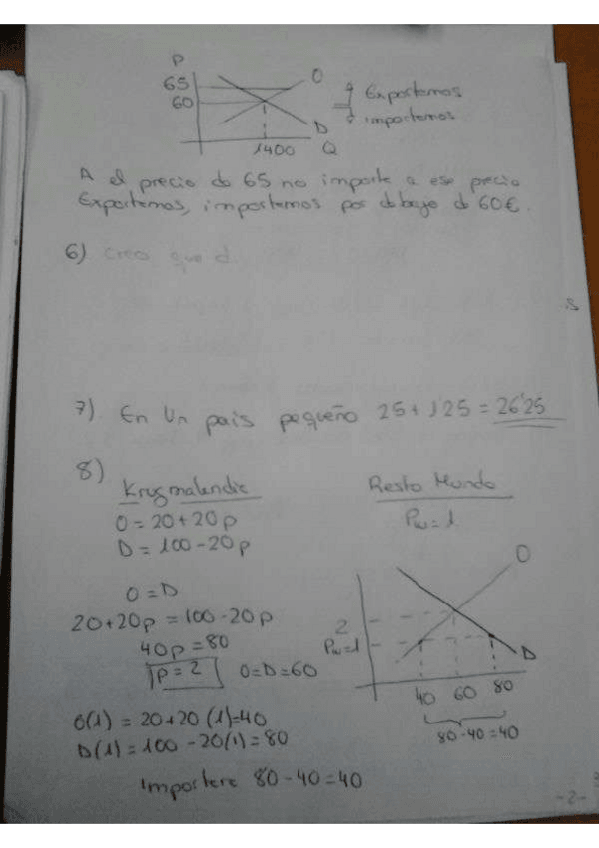 P
65
60
O
Exportamos
importamos
D
1400 Q
A el precio de 65 no importa a ese precio
Exportamos, importamos por debajo de 60€.
6) Creo que el
7) En Un pais pequeño 25+1'25 = 26'25
8)
Krugmalandia
Resto Mundo
O = 20+20p
D = 100-20p
Pw=1
O = D
20+20p = 100-20p
40p = 80
p = 2 O=D=60
O(1) = 20+20(1)=40
D(1) = 100-20(1) = 80
Importare 80-40=40
O
2
Pw=1
D
40 60 80
80-40=40
-2-